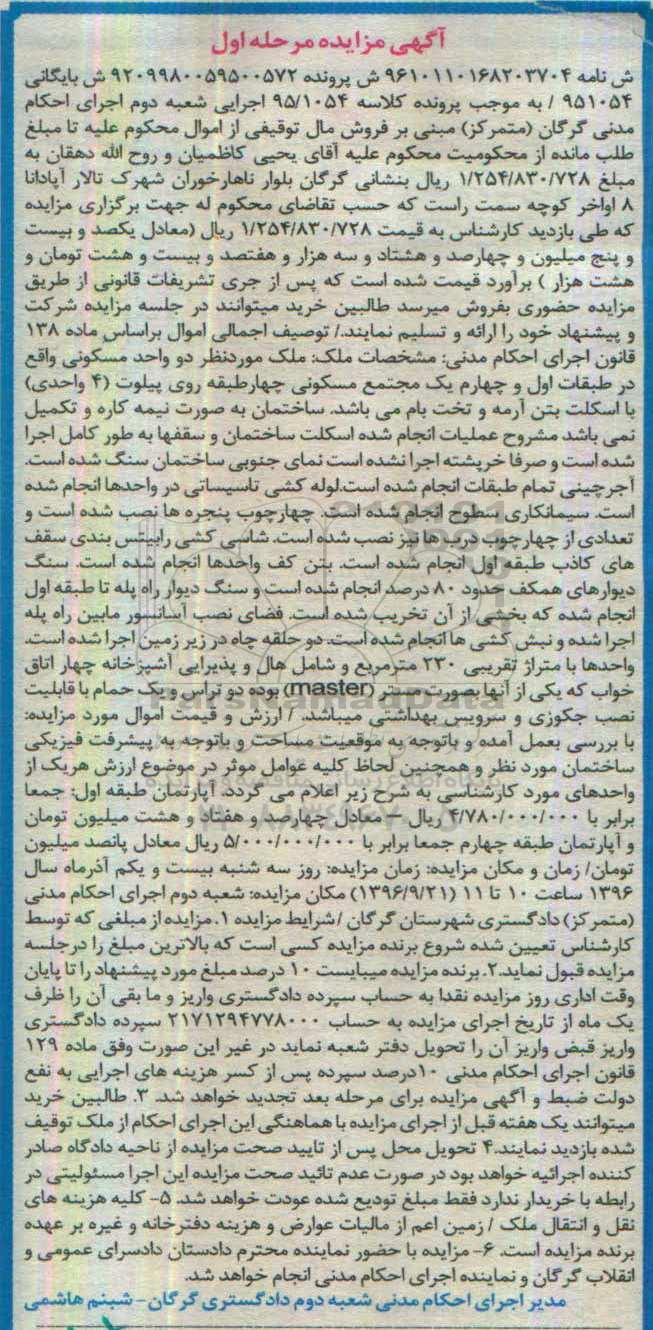 آگهی مزایده مرحله اول
ش نامه ۹۶۱۰۱۱۰۱۶۸۲۰۳۷۰۴ ش پرونده ۹۲۰۹۹۸۰۰۵۹۵۰۰۵۷۲ ش بایگانی
۹۵۱۰۵۴ / به موجب پرونده کلاسه ۹۵/۱۰۵۴ اجرایی شعبه دوم اجرای احکام
مدنی گرگان (متمرکز) مبنی بر فروش مال توقیفی از اموال محکوم علیه تا مبلغ
طلب مانده از محکومیت محکوم علیه آقای یحیی کاظمیان و روح الله دهقان به
مبلغ ۱/۲۵۴/۸۳۰/۷۲۸ ریال بنشانی گرگان بلوار ناهارخوران شهرک تالار آپادانا
۸ اواخر کوچه سمت راست که حسب تقاضای محکوم له جهت برگزاری مزایده
که طی بازدید کارشناس به قیمت ۱/۲۵۴/۸۳۰/۷۲۸ ریال (معادل یکصد و بیست
و پنج میلیون و چهارصد و هشتاد و سه هزار و هفتصد و بیست و هشت تومان و
هشت هزار ) برآورد قیمت شده است که پس از جری تشریفات قانونی از طریق
مزایده حضوری بفروش میرسد طالبین خرید میتوانند در جلسه مزایده شرکت
و پیشنهاد خود را ارائه و تسلیم نمایند./ توصیف اجمالی اموال براساس ماده ۱۳۸
قانون اجرای احکام مدنی: مشخصات ملک: ملک موردنظر دو واحد مسکونی واقع
در طبقات اول و چهارم یک مجتمع مسکونی چهارطبقه روی پیلوت (۴ واحدی)
با اسکلت بتن آرمه و تخت بام می باشد. ساختمان به صورت نیمه کاره و تکمیل
نمی باشد مشروح عملیات انجام شده اسکلت ساختمان و سقفها به طور کامل اجرا
شده است و صرفا خرپشته اجرا نشده است نمای جنوبی ساختمان سنگ شده است.
آجرچینی تمام طبقات انجام شده است.لوله کشی تاسیساتی در واحدها انجام شده
است. سیمانکاری سطوح انجام شده است. چهارچوب پنجره ها نصب شده است و
تعدادی از چهارچوب درب ها نیز نصب شده است. شاسی کشی رابیتس بندی سقف
های کاذب طبقه اول انجام شده است. بتن کف واحدها انجام شده است. سنگ
دیوارهای همکف حدود ۸۰ درصد انجام شده است و سنگ دیوار راه پله تا طبقه اول
انجام شده که بخشی از آن تخریب شده است. فضای نصب آسانسور مابین راه پله
اجرا شده و نبش کشی ها انجام شده است. دو حلقه چاه در زیر زمین اجرا شده است.
واحدها با متراژ تقریبی ۲۳۰ مترمربع و شامل هال و پذیرایی آشپزخانه چهار اتاق
خواب که یکی از آنها بصورت مستر (master) بوده دو تراس و یک حمام با قابلیت
نصب جکوزی و سرویس بهداشتی میباشد. / ارزش و قیمت اموال مورد مزایده:
با بررسی بعمل آمده و باتوجه به موقعیت مساحت و باتوجه به پیشرفت فیزیکی
ساختمان مورد نظر و همچنین لحاظ کلیه عوامل موثر در موضوع ارزش هریک از
واحدهای مورد کارشناسی به شرح زیر اعلام می گردد. آپارتمان طبقه اول: جمعا
برابر با ۴/۷۸۰/۰۰۰/۰۰۰ ریال – معادل چهارصد و هفتاد و هشت میلیون تومان
و آپارتمان طبقه چهارم جمعا برابر با ۵/۰۰۰/۰۰۰/۰۰۰ ریال معادل پانصد میلیون
تومان/ زمان و مکان مزایده: زمان مزایده: روز سه شنبه بیست و یکم آذرماه سال
۱۳۹۶ ساعت ۱۰ تا ۱۱ (۱۳۹۶/۹/۲۱) مکان مزایده: شعبه دوم اجرای احکام مدنی
(متمرکز) دادگستری شهرستان گرگان /شرایط مزایده ۱. مزایده از مبلغی که توسط
کارشناس تعیین شده شروع برنده مزایده کسی است که بالاترین مبلغ را درجلسه
مزایده قبول نماید.۲. برنده مزایده میبایست ۱۰ درصد مبلغ مورد پیشنهاد را تا پایان
وقت اداری روز مزایده نقدا به حساب سپرده دادگستری واریز و ما بقی آن را ظرف
یک ماه از تاریخ اجرای مزایده به حساب ۲۱۷۱۲۹۴۷۷۸۰۰۰ سپرده دادگستری
واریز قبض واریز آن را تحویل دفتر شعبه نماید در غیر این صورت وفق ماده ۱۲۹
قانون اجرای احکام مدنی ۱۰درصد سپرده پس از کسر هزینه های اجرایی به نفع
دولت ضبط و آگهی مزایده برای مرحله بعد تجدید خواهد شد. ۳. طالبین خرید
میتوانند یک هفته قبل از اجرای مزایده با هماهنگی این اجرای احکام از ملک توقیف
شده بازدید نمایند.۴ تحویل محل پس از تایید صحت مزایده از ناحیه دادگاه صادر
کننده اجرائیه خواهد بود در صورت عدم تائید صحت مزایده این اجرا مسئولیتی در
رابطه با خریدار ندارد فقط مبلغ تودیع شده عودت خواهد شد. ۵- کلیه هزینه های
نقل و انتقال ملک / زمین اعم از مالیات عوارض و هزینه دفترخانه و غیره بر عهده
برنده مزایده است. ۶- مزایده با حضور نماینده محترم دادستان دادسرای عمومی و
انقلاب گرگان و نماینده اجرای احکام مدنی انجام خواهد شد.
مدیر اجرای احکام مدنی شعبه دوم دادگستری گرگان- شبنم هاشمی